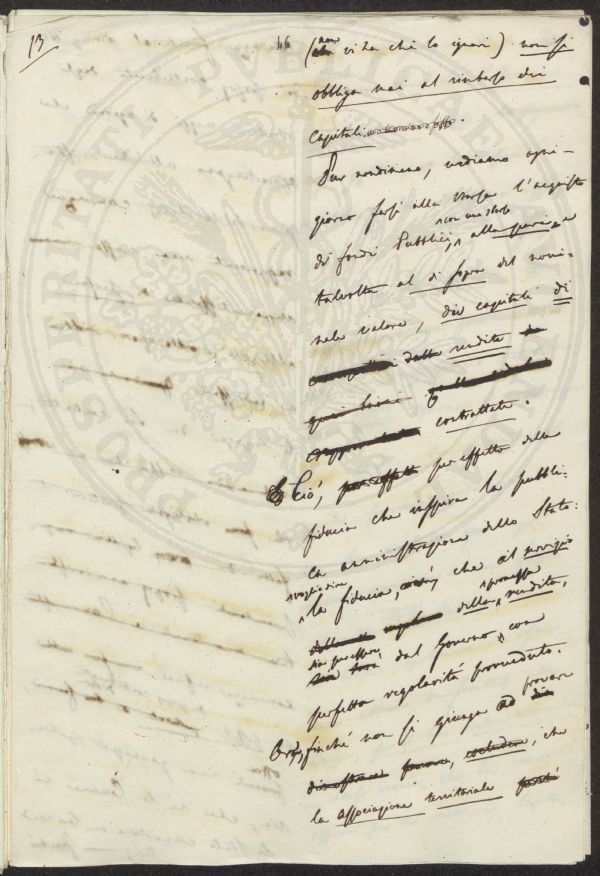 13
46
(non v'ha chi lo ignori) non si
obbliga mai al rimborso dei
Capitali.
Pur nondimeno, vediamo ogni-
giorno farsi alla borsa l'acquisto
di fondi Pubblici,
talvolta al di sopra del nomi-
nale valore, dei capitali di
dalla rendita
contrattata.
Ciò, per effetto della
fiducia che inspira la pubbli-
ca amministrazione dello Stato:
voglio dire
la fiducia, che il servigio
della promessa rendita,
sia per essere
dal Governo, con
perfetta regolarità provveduto.
Or, finché non si giunga ad provare
che
la associazione territoriale